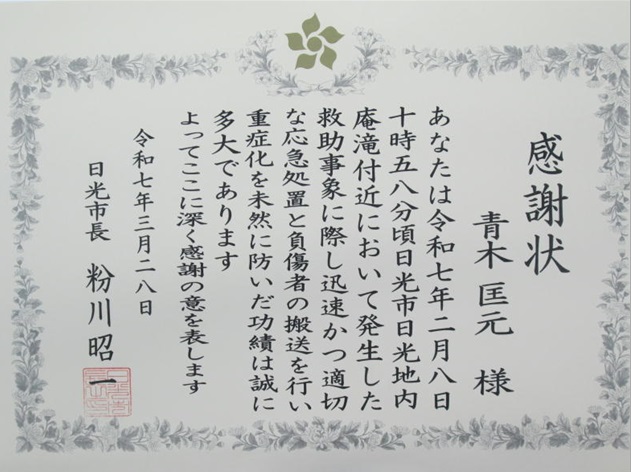 感謝状
青木匡元 様
あなたは令和七年二月八日
十時五八分頃日光市日光地内
庵滝付近において発生した
救助事象に際し迅速かつ適切
な応急処置と負傷者の搬送を行い
重症化を未然に防いだ功績は誠に
多大であります
よってここに深く感謝の意を表します
令和七年三月二八日
日光市長 粉川昭一